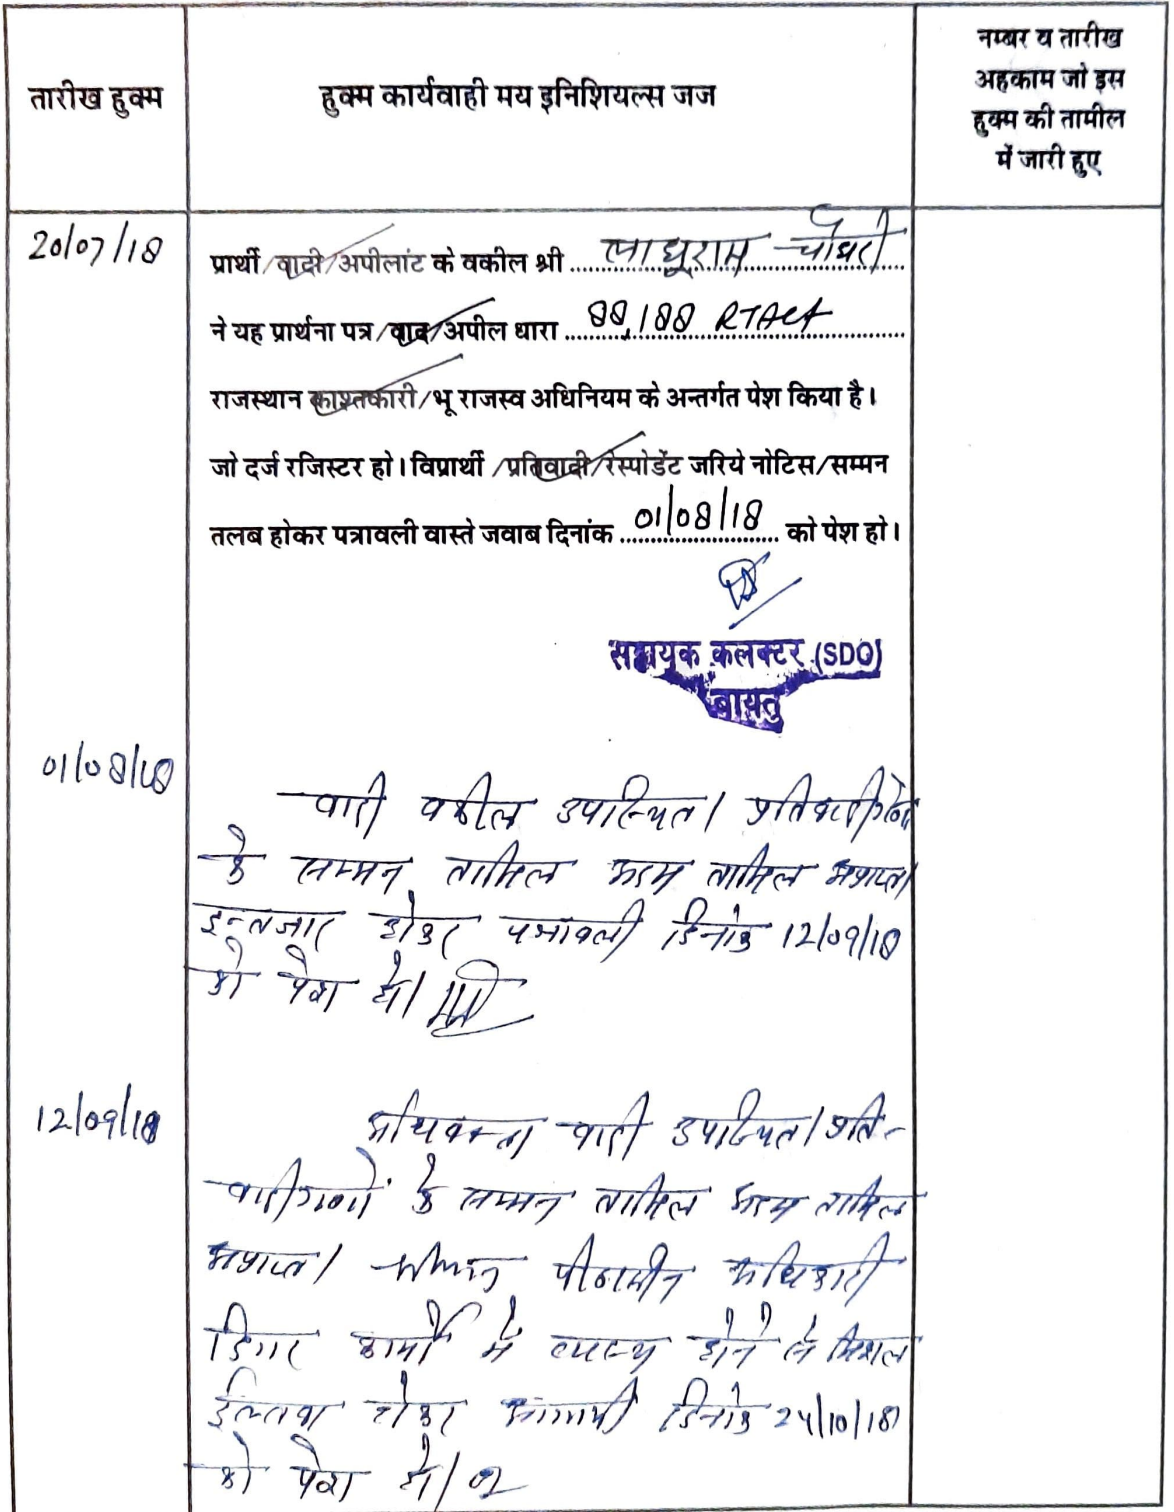 तारीख हुक्म
हुक्म कार्यवाही मय इनिशियल्स जज
नम्बर व तारीख
अहकाम जो इस
हुक्म की तामील
में जारी हुए
20/07/18
प्रार्थी/वादी/अपीलांट के वकील श्री लाधूराम चौधरी
ने यह प्रार्थना पत्र/वाद/अपील धारा 88,188 RTAct
राजस्थान काश्तकारी/भू राजस्व अधिनियम के अन्तर्गत पेश किया है।
जो दर्ज रजिस्टर हो। विप्रार्थी /प्रतिवादी/रेस्पोडेंट जरिये नोटिस/सम्मन
तलब होकर पत्रावली वास्ते जवाब दिनांक 01/08/18 को पेश हो।
सहायक कलक्टर (SDO)
बायतु
01/08/18
वादी वकील उपस्थित। प्रतिवादीगणों
के सम्मन तामिल अदम तामिल अप्राप्त।
इन्तजार होकर पत्रावली दिनांक 12/09/18
को पेश हो।
12/09/18
अधिवक्ता वादी उपस्थित। प्रति-
वादीगणों के सम्मन तामिल अदम तामिल
अप्राप्त। श्रीमान पीठासीन अधिकारी
दिगर कार्मो में व्यस्थ होने से मिशल
ईल्तवा होकर आगामी दिनांक 24/10/18
को पेश हो।